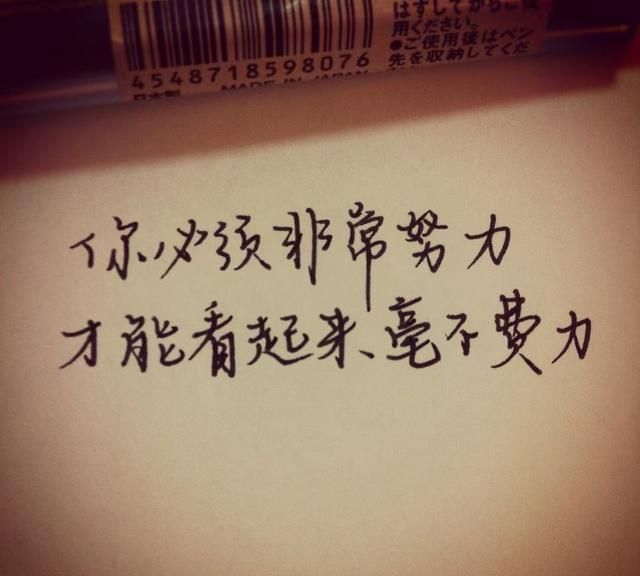 はずしてからご使
用ください。
●ご使用後はペン
先を収納してくだ
4548718598076
日本製 MADE IN JAPAN
你必须非常努力
才能看起来毫不费力